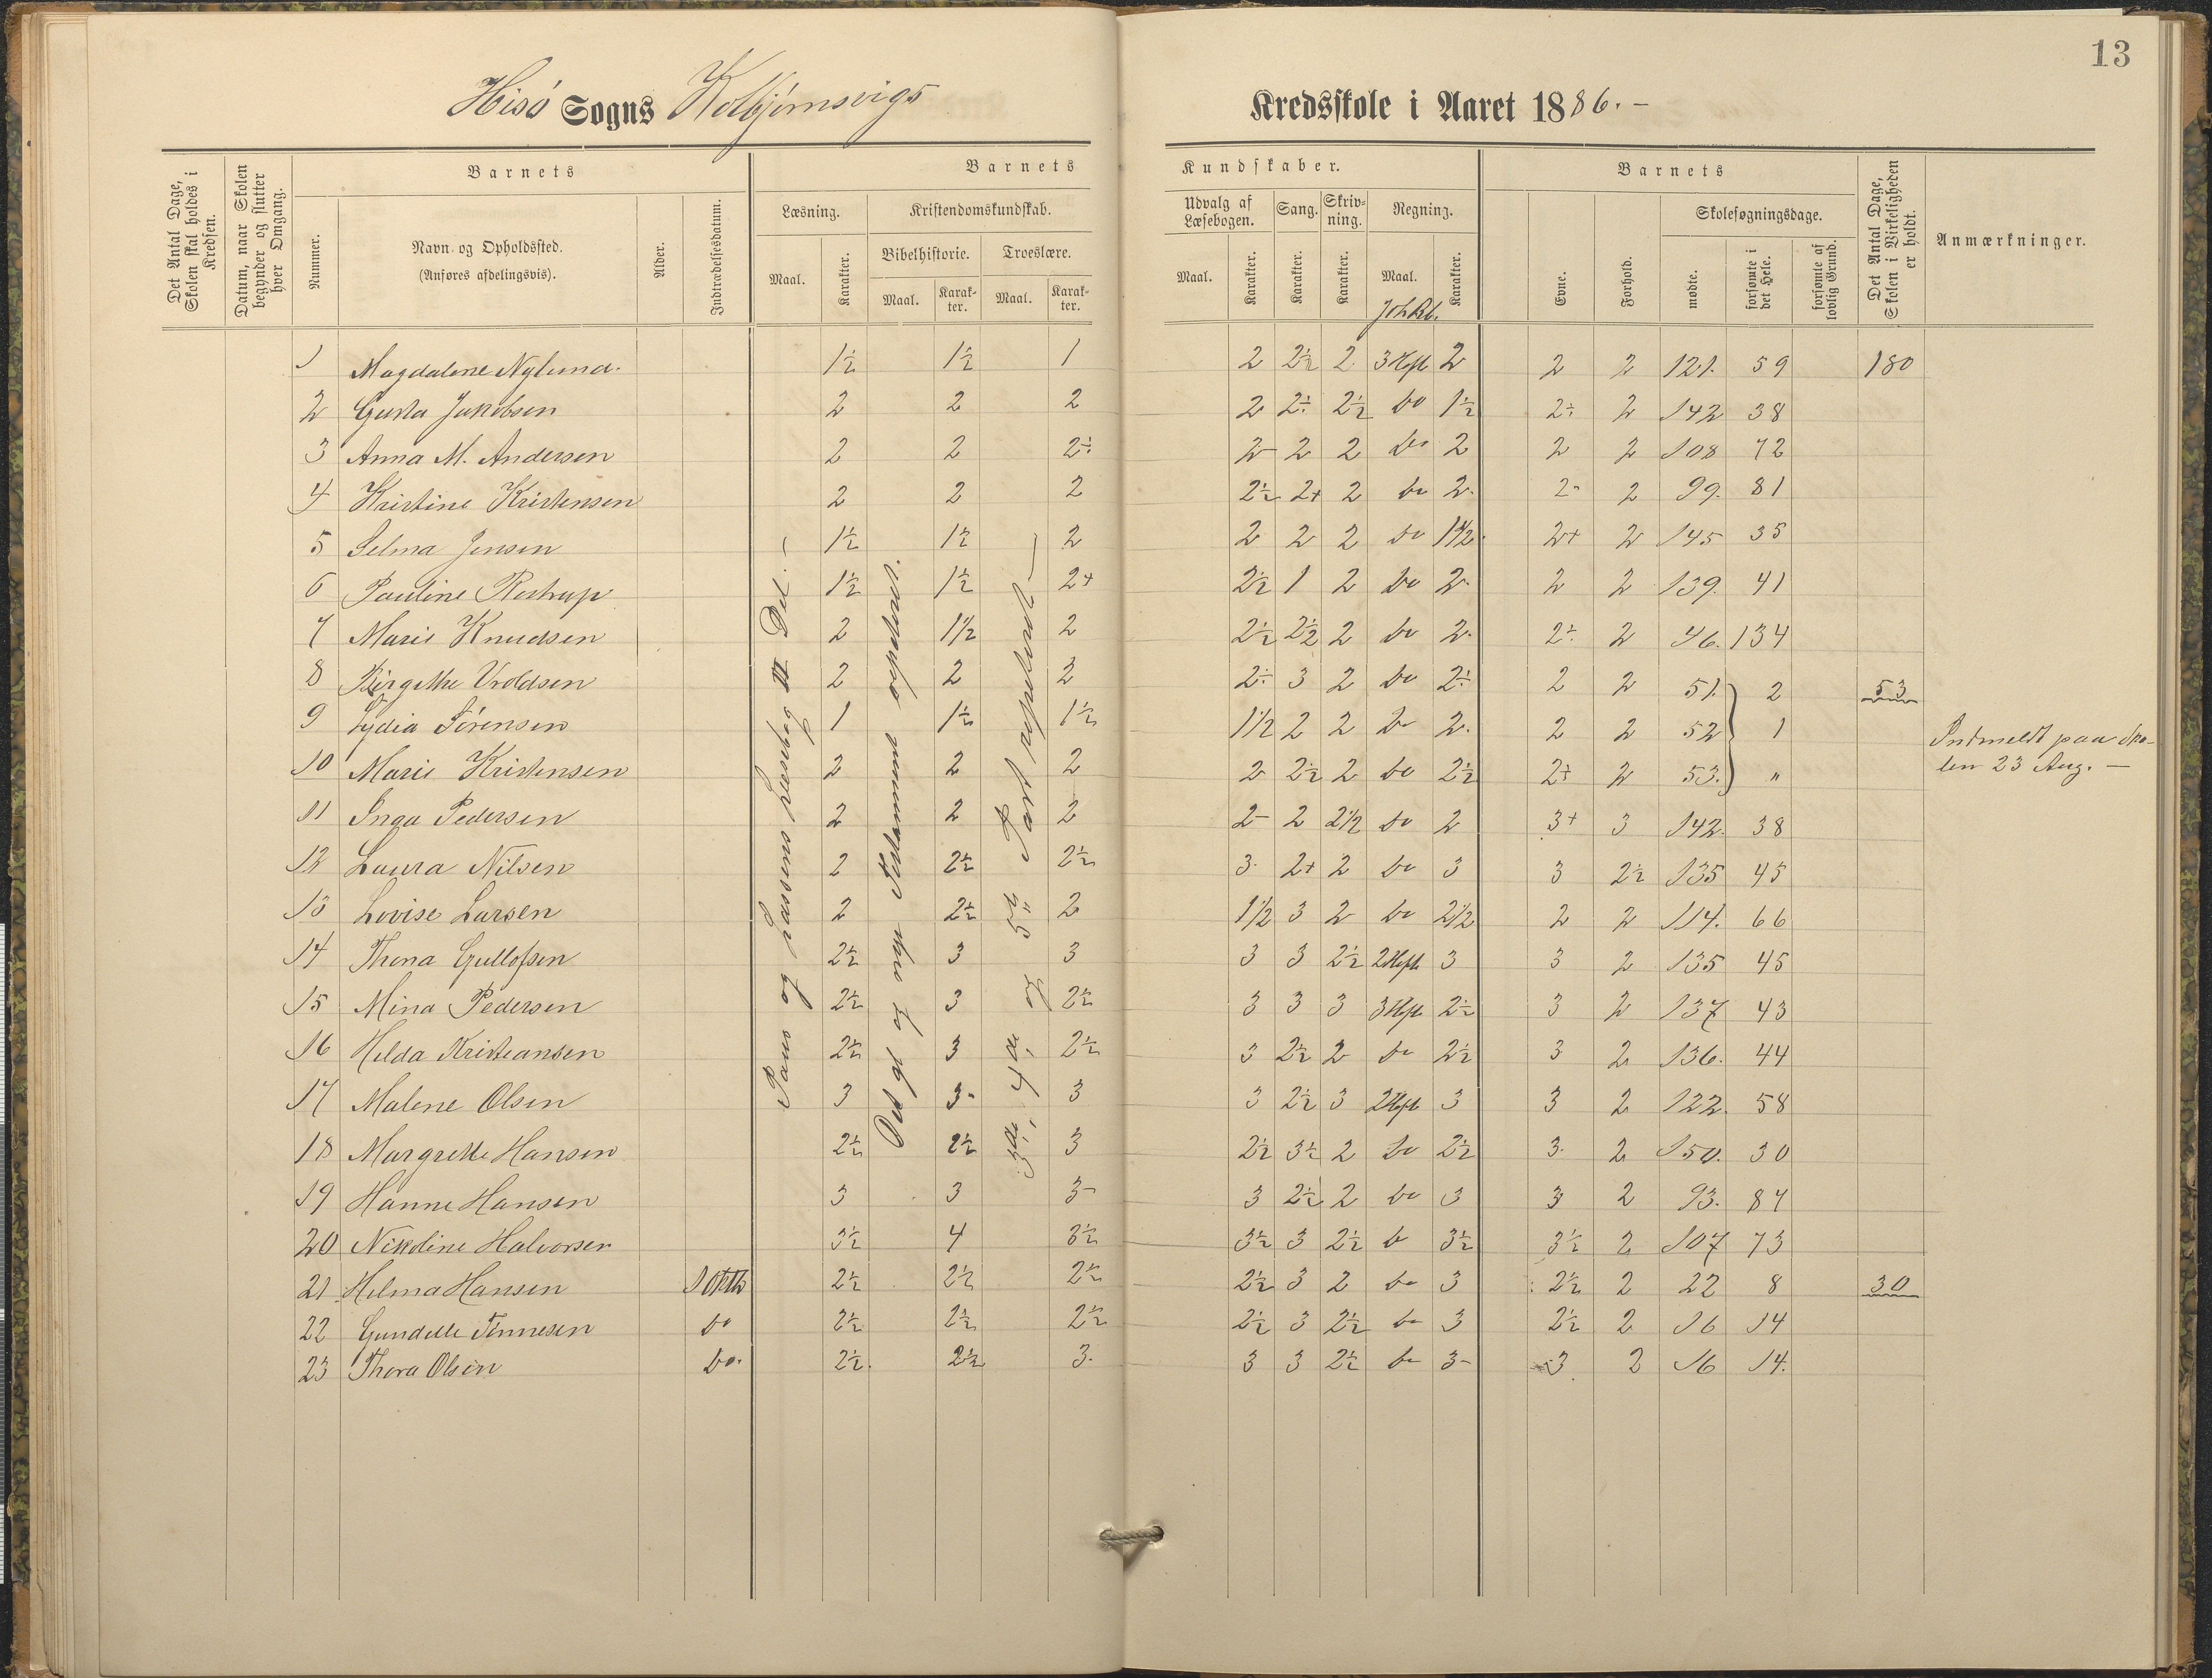 13
Hisø Sogns Kolbjørnsvigs Kredsskole i Aaret 1886.-
Det Antal Dage, Skolen skal holdes i Kredsen.
Datum, naar Skolen begynder og slutter hver Omgang.
Barnets
Nummer.
Navn og Opholdssted.
(Anføres afdelingsvis).
Alder.
Indtrædelsesdatum.
Barnets Kundskaber.
Læsning.
Maal.
Karakter.
Kristendomskundskab.
Bibelhistorie.
Maal.
Karakter.
Troeslære.
Maal.
Karakter.
Udvalg af Læsebogen.
Maal.
Karakter.
Sang.
Karakter.
Skrivning.
Karakter.
Regning.
Maal.
Karakter.
Barnets
Evne.
Forhold.
Skolesøgningsdage.
mødte.
forsømte i det Hele.
forsømte af lovlig Grund.
Det Antal Dage, Skolen i Virkeligheden er holdt.
Anmærkninger.
Paus og Lassens Læsebog II Del. -
Det gl. og nye Testamente repeteret.
3die, 4de og 5te Part repeteret -
1 Magdalene Nylund. 1½ 1½ 1 2 2½ 2 3 Hft 2 2 2 121. 59 180
2 Gusta Jakobsen 2 2 2 2 2÷ 2½ do 1½ 2÷ 2 142 38
3 Anna M. Andersen 2 2 2÷ 2- 2 2 do 2 2 2 108 72
4 Kristine Kristensen 2 2 2 2½ 2+ 2 do 2- 2- 2 99. 81
5 Selma Jensen 1½ 1½ 2 2 2 2 do 1½ 2+ 2 145 35
6 Pauline Rostrup 1½ 1½ 2+ 2½ 1 2 do 2- 2 2 139. 41
7 Marie Knudsen 2 1½ 2 2½ 2½ 2 do 2- 2÷ 2 46. 134
8 Birgitte Uroldsen 2 2 2 2÷ 3 2 do 2÷ 2 2 51. 2 53
9 Lydia Sørensen 1 1½ 1½ 1½ 2 2 do 2. 2 2 52 1
10 Marie Kristensen 2 2 2 2 2½ 2 do 2½ 2+ 2 53. "
Indmeldt paa Sko-
len 23 Aug. -
11 Inga Pedersen 2 2 2 2- 2 2½ do 2 3+ 3 142. 38
12 Laura Nilsen 2 2½ 2½ 3. 2+ 2 do 3 3 2½ 135 45
13 Lovise Larsen 2 2½ 2 1½ 3 2 do 2½ 2 2 114. 66
14 Thona Gullofsen 2½ 3 3 3 3 2½ 2 Hft 3 3 2 135 45
15 Mina Pedersen 2½ 3 2½ 3 3 3 3 Hft 2½ 3 2 137 43
16 Helda Kristiansen 2½ 3 2½ 3 2½ 2 do 2½ 3 2 136. 44
17 Malene Olsen 3 3- 3 3 2½ 3 2 Hft 3 3 2 122. 58
18 Margrethe Hansen 2½ 2½ 3 2½ 3½ 2 do 2½ 3. 2 150. 30
19 Hanne Hansen 3 3 3- 3 2½ 2 do 3 3 2 93. 87
20 Nikoline Halvorsen 3½ 4 3½ 3½ 3 2½ do 3½ 3½ 2 107 73
21 Helma Hansen 2½ 2½ 2½ 2½ 3 2 do 3 2½ 2 22 8 30
22 Gundelle Tønnesen do 2½ 2½ 2½ 2½ 3 2½ do 3 2½ 2 16 14
23 Thora Olsen do. 2½. 2½ 3. 3 3 2½ do 3- 3 2 16 14.